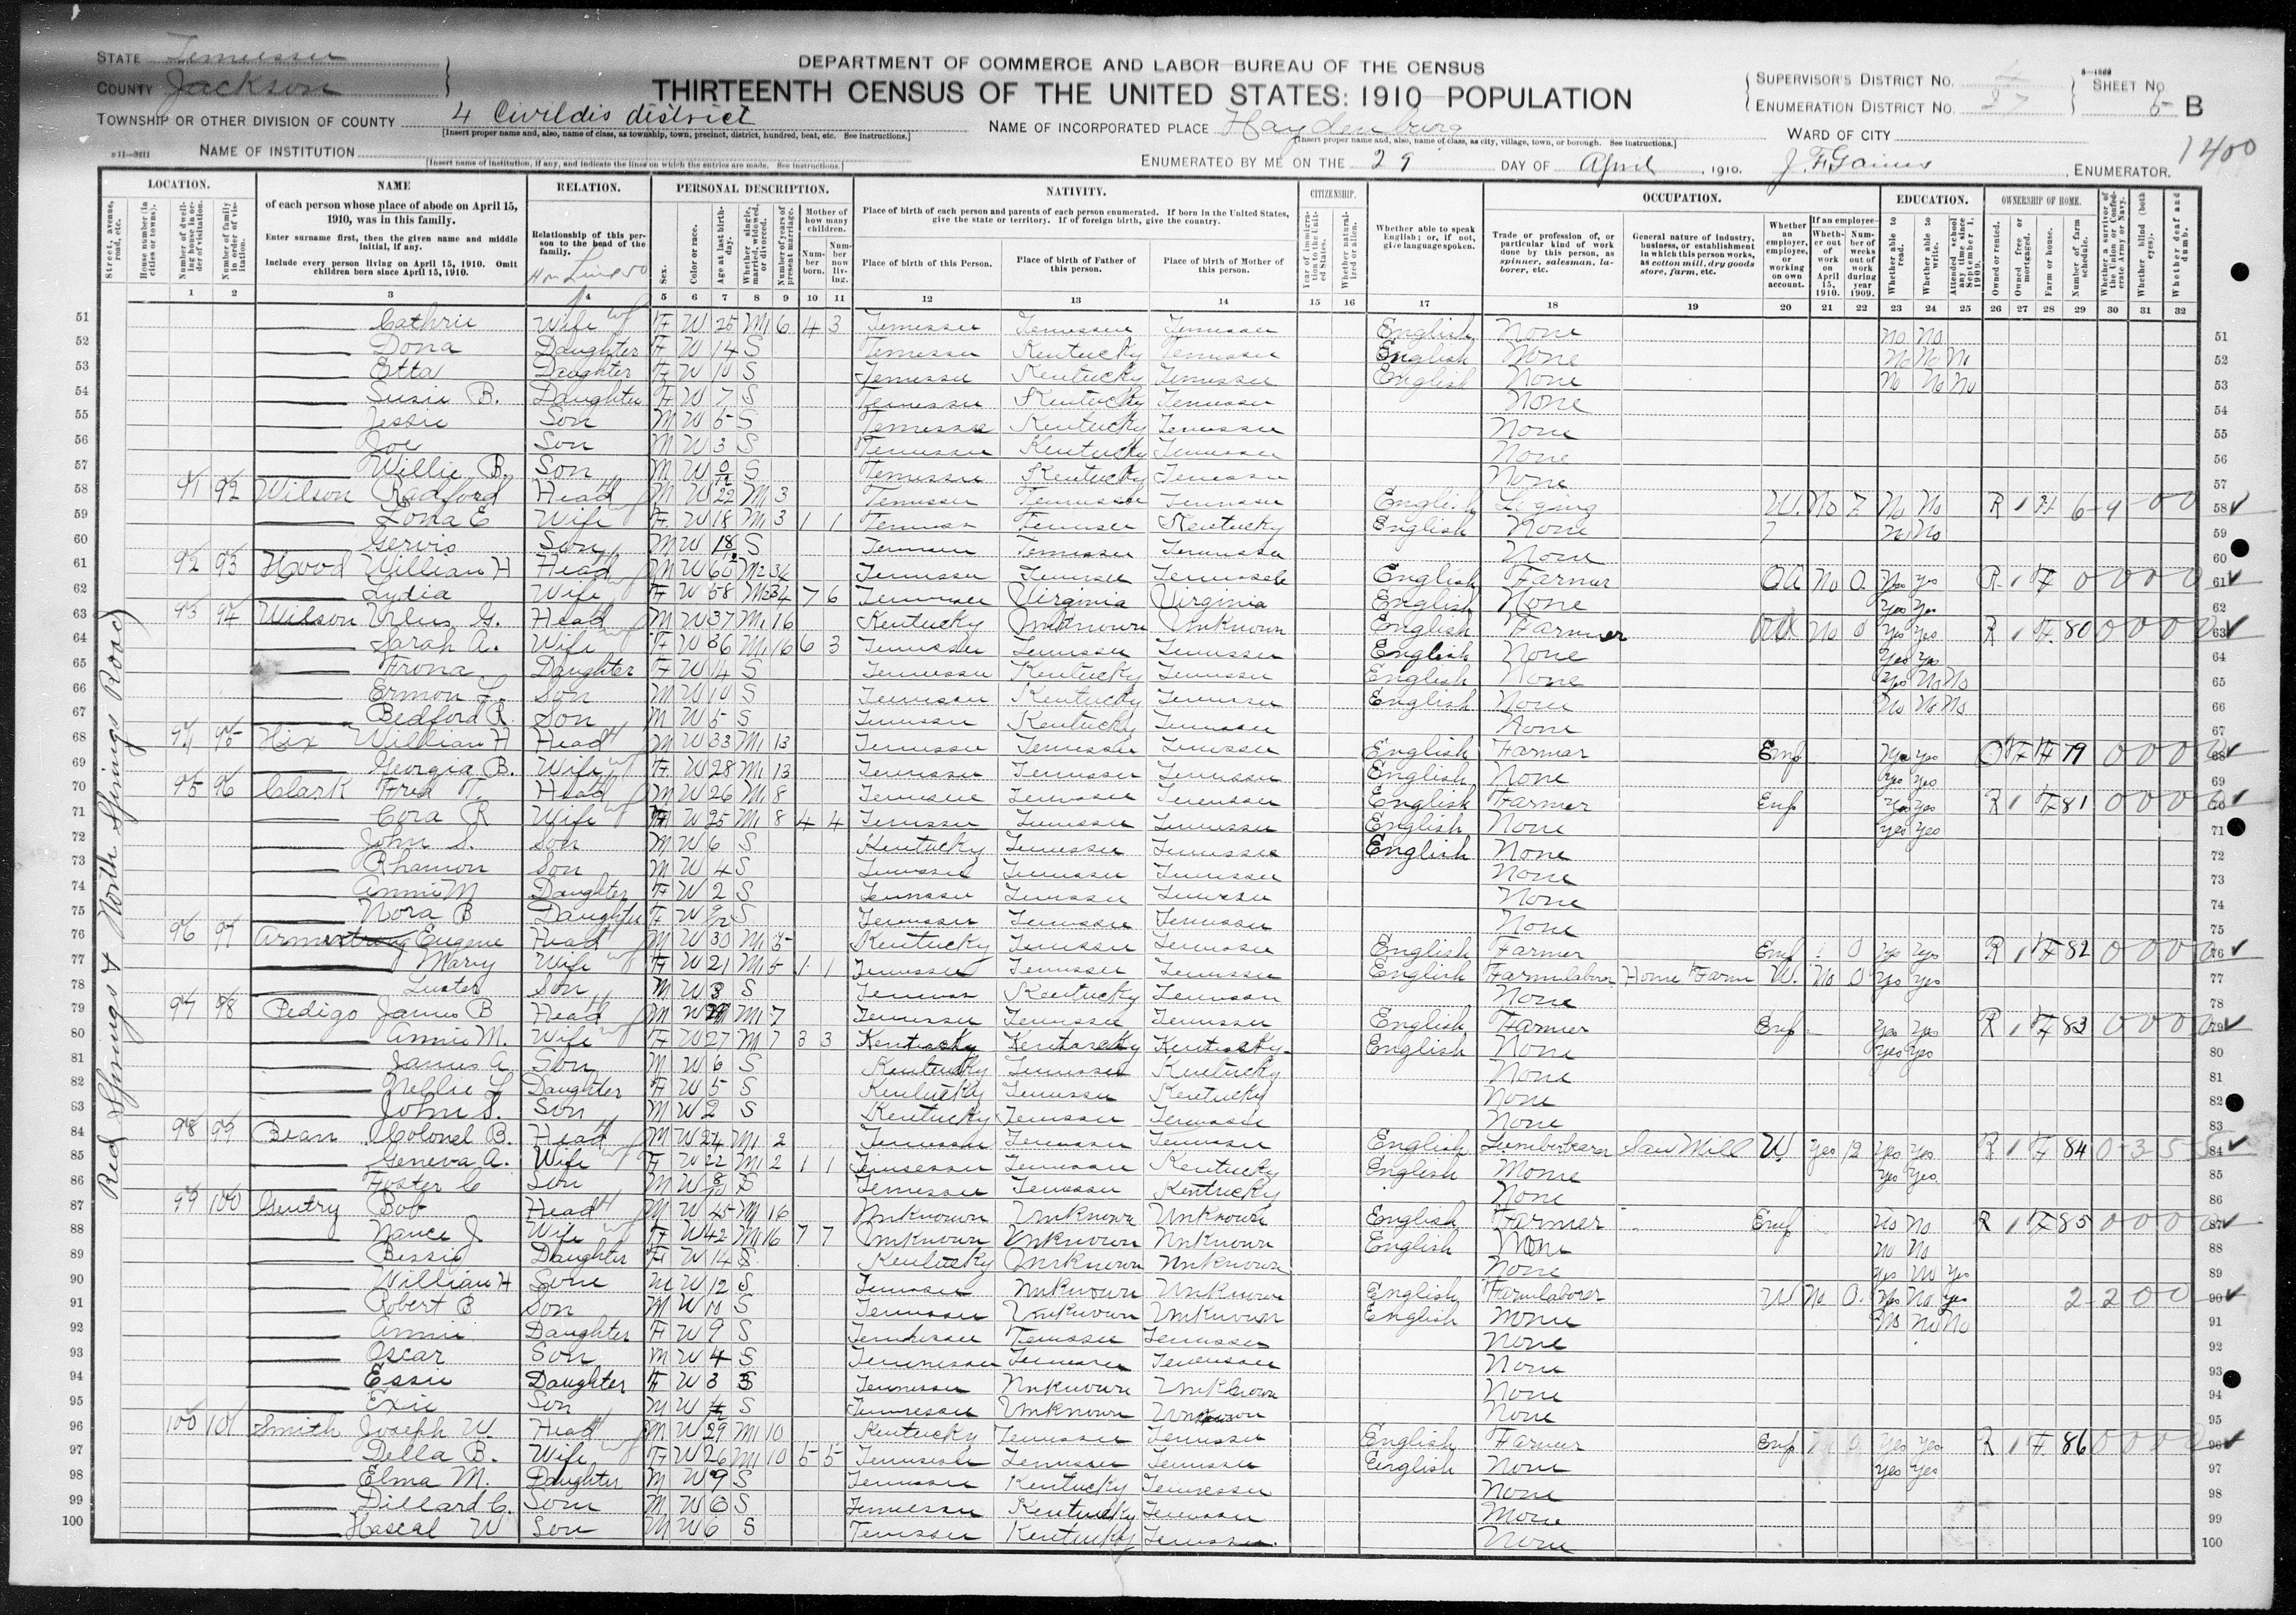 STATE Tennessee
COUNTY Jackson
TOWNSHIP OR OTHER DIVISION OF COUNTY 4 Civildis district
[Insert proper name and, also, name of class, as township, town, precinct, district, hundred, beat, etc. See instructions.]
NAME OF INSTITUTION
[Insert name of institution, if any, and indicate the lines on which the entries are made. See instructions.]
DEPARTMENT OF COMMERCE AND LABOR-BUREAU OF THE CENSUS
THIRTEENTH CENSUS OF THE UNITED STATES: 1910 POPULATION
NAME OF INCORPORATED PLACE Haydenburg
[Insert proper name and, also, name of class, as city, village, town, or borough. See instructions.]
ENUMERATED BY ME ON THE 29 DAY OF April, 1910. J. F. Gaines, ENUMERATOR.
SUPERVISOR'S DISTRICT NO. 4
ENUMERATION DISTRICT NO. 37
SHEET NO. 5 B
WARD OF CITY
1400
LOCATION. NAME RELATION. PERSONAL DESCRIPTION. NATIVITY. CITIZENSHIP. OCCUPATION. EDUCATION. OWNERSHIP OF HOME.
of each person whose place of abode on April 15, 1910, was in this family.
Enter surname first, then the given name and middle initial, if any.
Include every person living on April 15, 1910. Omit children born since April 15, 1910.
Relationship of this person to the head of the family.
Place of birth of each person and parents of each person enumerated. If born in the United States, give the state or territory. If of foreign birth, give the country.
Place of birth of this Person. Place of birth of Father of this person. Place of birth of Mother of this person.
Whether able to speak English; or, if not, give language spoken.
Trade or profession of, or particular kind of work done by this person, as spinner, salesman, laborer, etc.
General nature of industry, business, or establishment in which this person works, as cotton mill, dry goods store, farm, etc.
Whether an employer, employee, or working on own account.
1 2 3 4 5 6 7 8 9 10 11 12 13 14 15 16 17 18 19 20 21 22 23 24 25 26 27 28 29 30 31 32
Red Springs & North Springs Road
51 Cathrie Wife F W 25 M1 6 4 3 Tennessee Tennessee Tennessee English None No No
52 Dona Daughter F W 14 S Tennessee Kentucky Tennessee English None No No No
53 Etta Daughter F W 10 S Tennessee Kentucky Tennessee English None No No No
54 Susie B. Daughter F W 7 S Tennessee Kentucky Tennessee None
55 Jessie Son M W 5 S Tennessee Kentucky Tennessee None
56 Joe Son M W 3 S Tennessee Kentucky Tennessee None
57 Willie B. Son M W 0/12 S Tennessee Kentucky Tennessee None
58 91 92 Wilson Radford Head M W 22 M1 3 Tennessee Tennessee Tennessee English Loging W. No 7 No No R F 6-9-0 0
59 Lona E Wife F W 18 M1 3 1 1 Tennessee Tennessee Kentucky English None No No
60 Gervis Son M W 18/12 S Tennessee Tennessee Tennessee None
61 92 93 Hood William H Head M W 60 M2 34 Tennessee Tennessee Tennessee English Farmer OA No 0 Yes Yes R F 0 0 0 0
62 Lydia Wife F W 58 M2 34 7 6 Tennessee Virginia Virginia English None Yes Yes
63 93 94 Wilson G. Head M W 37 M1 16 Kentucky Unknown Unknown English Farmer OA No 0 Yes Yes R F 80 0 0 0 0
64 Sarah A. Wife F W 36 M1 16 6 3 Tennessee Tennessee Tennessee English None Yes Yes
65 Frona Daughter F W 14 S Tennessee Kentucky Tennessee English None Yes No No
66 Ermon L. Son M W 10 S Tennessee Kentucky Tennessee English None No No No
67 Bedford R. Son M W 5 S Tennessee Kentucky Tennessee None
68 94 95 Hix William H Head M W 33 M1 13 Tennessee Tennessee Tennessee English Farmer Emp Yes Yes O F F 79 0 0 0 0
69 Georgia B. Wife F W 28 M1 13 Tennessee Tennessee Tennessee English None Yes Yes
70 95 96 Clark Fred T. Head M W 26 M1 8 Tennessee Tennessee Tennessee English Farmer Emp Yes Yes R F 81 0 0 0 0
71 Cora R Wife F W 25 M1 8 4 4 Tennessee Tennessee Tennessee English None Yes Yes
72 John S. Son M W 6 S Kentucky Tennessee Tennessee English None
73 Rhamon Son M W 4 S Tennessee Tennessee Tennessee None
74 Annie M Daughter F W 2 S Tennessee Tennessee Tennessee None
75 Nora B Daughter F W 9/12 S Tennessee Tennessee Tennessee None
76 96 97 Armstrong Eugene Head M W 30 M1 5 Kentucky Tennessee Tennessee English Farmer Emp 0 Yes Yes R F 82 0 0 0 0
77 Mary Wife F W 21 M1 5 1 1 Tennessee Tennessee Tennessee English Farmlabor Home Farm W. No 0 Yes Yes
78 Luster Son M W 3 S Tennessee Kentucky Tennessee None
79 97 98 Pedigo James B Head M W 29 M1 7 Tennessee Tennessee Tennessee English Farmer Emp Yes Yes R F 83 0 0 0 0
80 Annie M. Wife F W 27 M1 7 3 3 Kentucky Kentucky Kentucky English None Yes Yes
81 James A Son M W 6 S Kentucky Tennessee Kentucky None
82 Nellie L Daughter F W 5 S Kentucky Tennessee Kentucky None
83 John S. Son M W 2 S Kentucky Tennessee Tennessee None
84 98 99 Bean Colonel B. Head M W 24 M1 2 Tennessee Tennessee Tennessee English Saw Mill W Yes 12 Yes Yes R F 84 0-3 5-5
85 Geneva A. Wife F W 22 M1 2 1 1 Tennessee Tennessee Kentucky English None Yes Yes
86 Foster C Son M W S Tennessee Tennessee Kentucky None
87 99 100 Gentry Bob Head M W 45 M1 16 Unknown Unknown Unknown English Farmer Emp No No R F 85 0 0 0 0
88 Nance J Wife F W 42 M1 16 7 7 Unknown Unknown Unknown English None No No
89 Bessie Daughter F W 14 S Kentucky Unknown Unknown None Yes No Yes
90 William H Sone M W 12 S Tennessee Unknown Unknown English Farmlaborer W No 0 Yes No Yes 2-2 0 0
91 Robert B Son M W 10 S Tennessee Unknown Unknown English None No No No
92 Annie Daughter F W 9 S Tennessee Tennessee Tennessee None
93 Oscar Son M W 4 S Tennessee Tennessee Tennessee None
94 Essie Daughter F W 3 S Tennessee Unknown Unknown None
95 Exie Son M W S Tennessee Unknown Unknown None
96 100 101 Smith Joseph W. Head M W 29 M1 10 Kentucky Tennessee Tennessee English Farmer Emp Yes Yes R F 86 0 0 0 0
97 Della B. Wife F W 26 M1 10 5 5 Tennessee Tennessee Tennessee English None Yes Yes
98 Elma M. Daughter M W 9 S Tennessee Kentucky Tennessee None
99 Dillard C. Son M W S Tennessee Kentucky Tennessee None
100 Hascal W Son M W 6 S Tennessee Kentucky Tennessee None